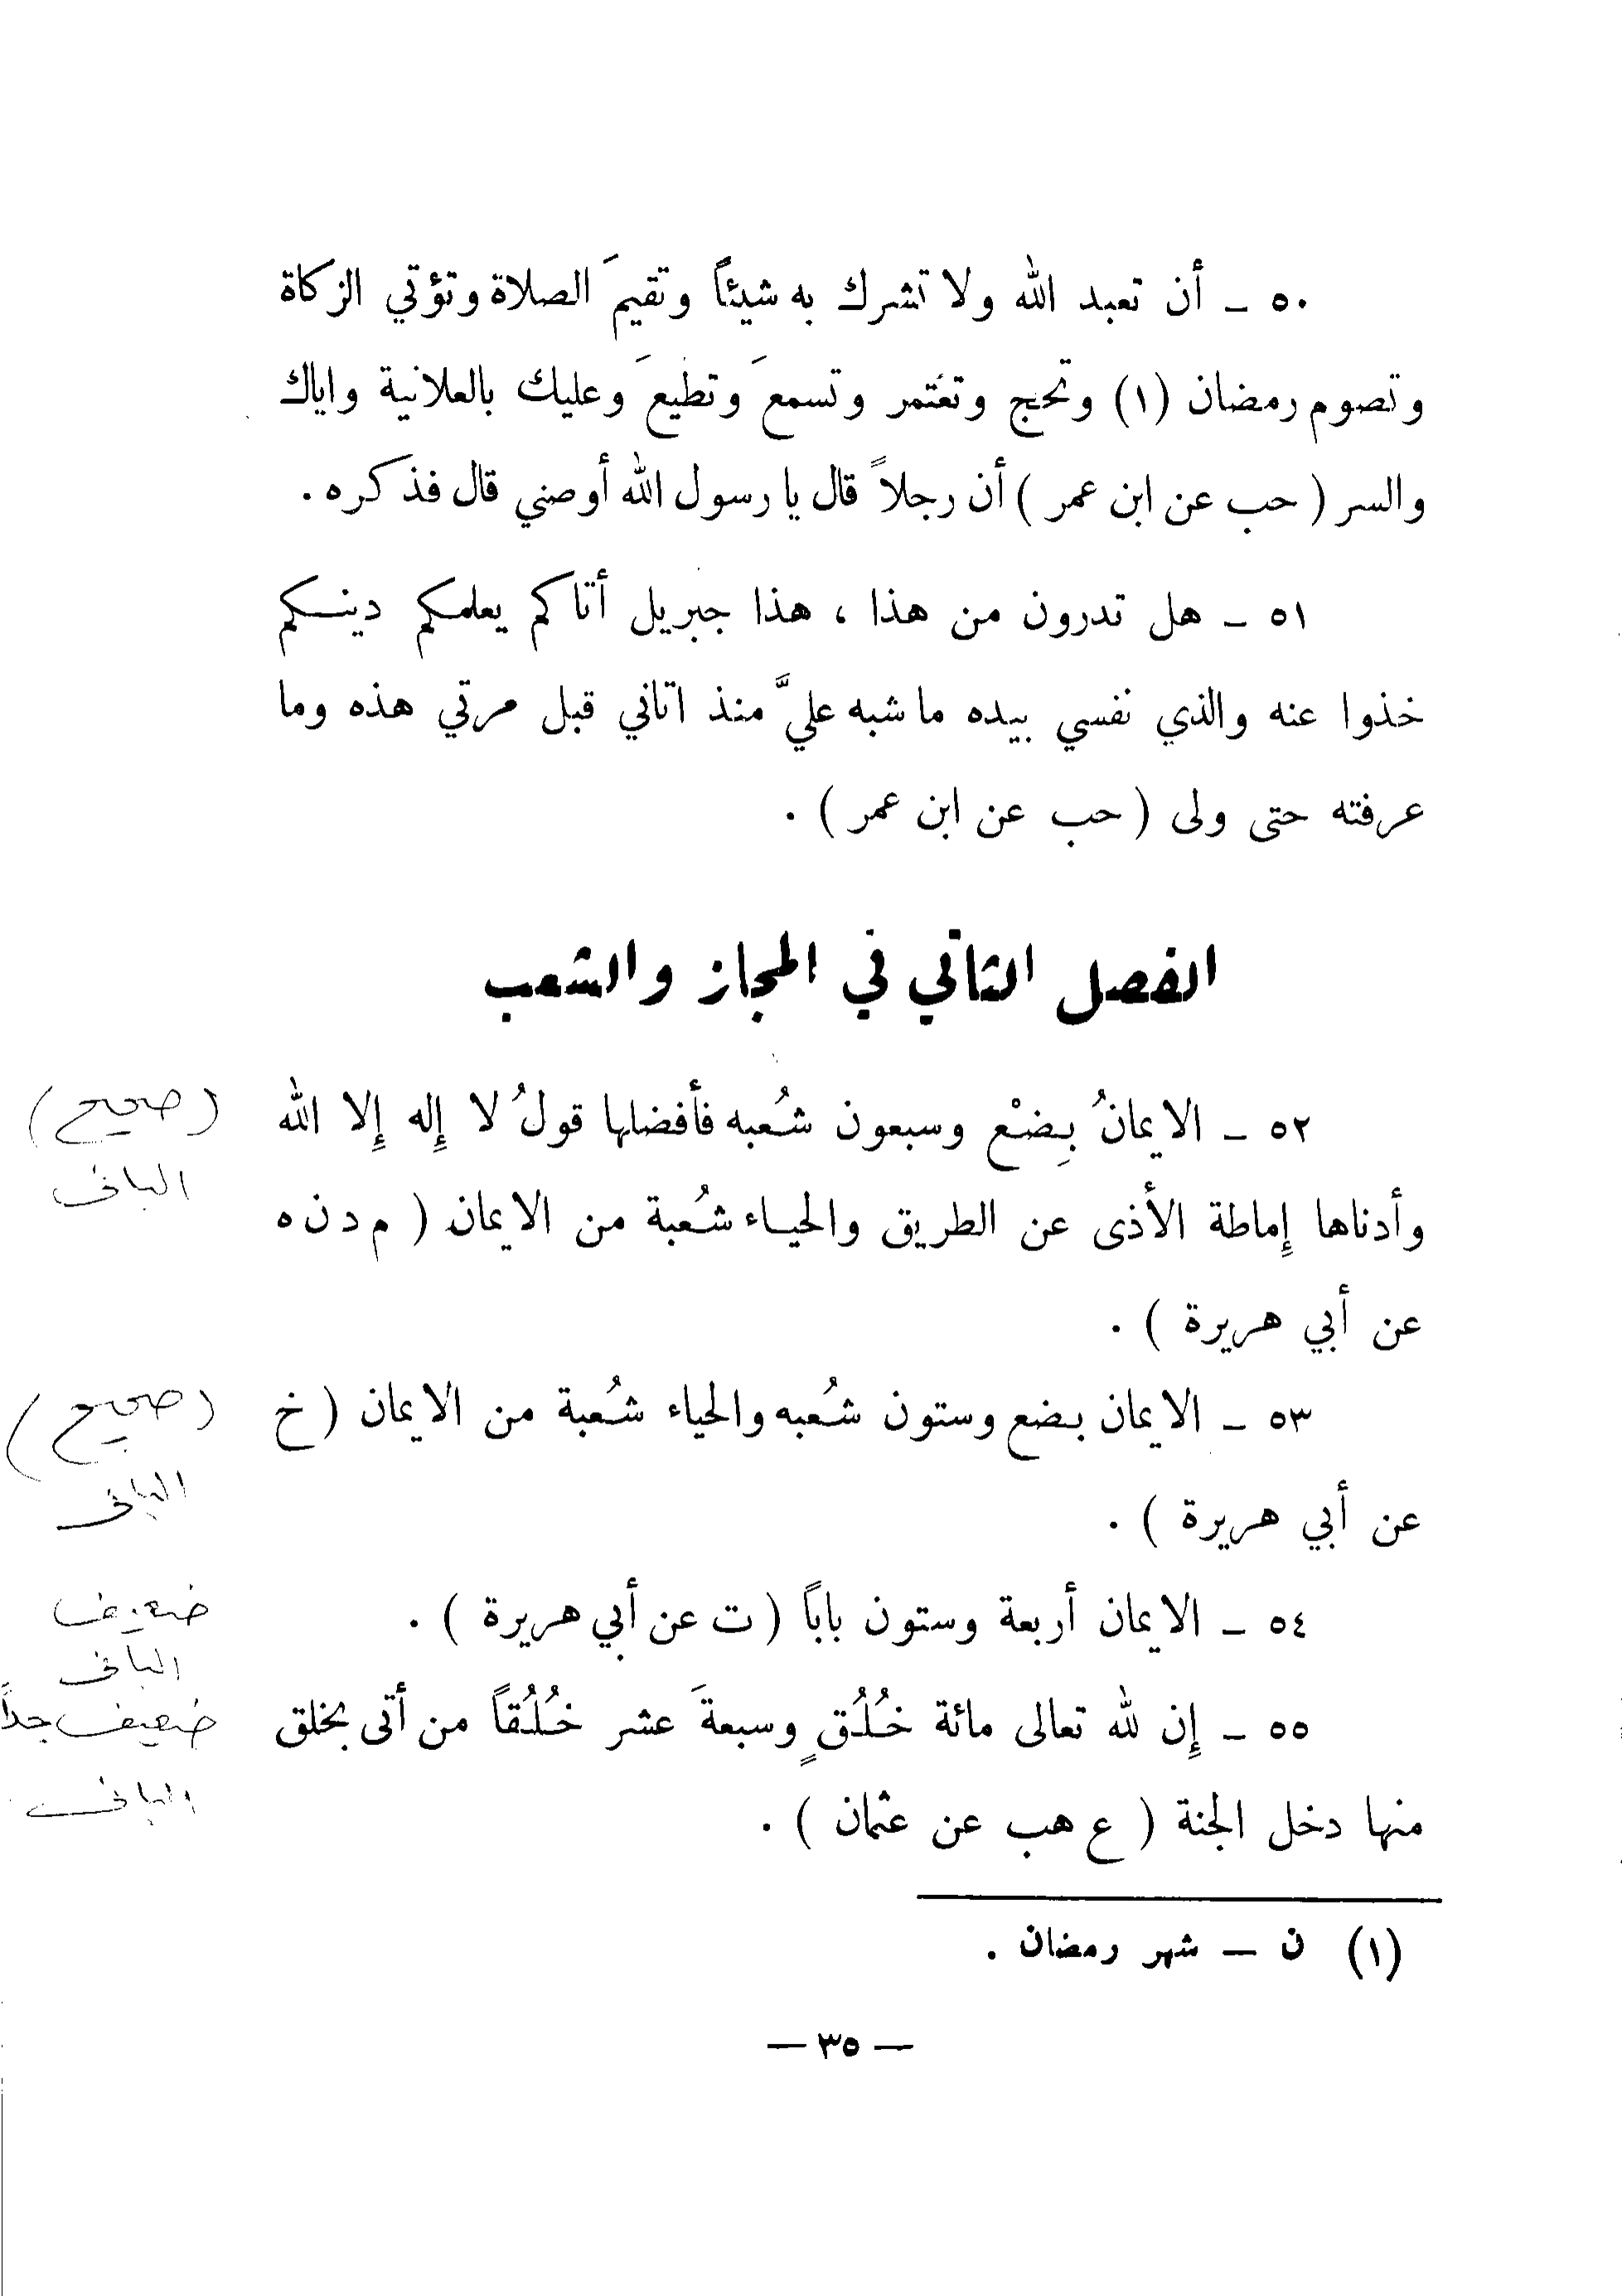 ٥٠ - أن تعبد الله ولا تشرك به شيئاً وتقيمَ الصلاة وتؤتي الزكاة
وتصوم رمضان (١) وتحج وتعتمر وتسمعَ وتطيعَ وعليك بالعلانية واياك
والسر ( حب عن ابن عمر ) أن رجلاً قال يا رسول الله أوصني قال فذكره .
٥١ - هل تدرون من هذا ، هذا جبريل أتاكم يعلمكم دينكم
خذوا عنه والذي نفسي بيده ما شبه عليَّ منذ اتاني قبل مرتي هذه وما
عرفته حتى ولى ( حب عن ابن عمر ) .
الفصل الثاني في المجاز والشعب
٥٢ - الايمانُ بِضْع وسبعون شُعبه فأفضلها قولُ لا إله إلا الله
(صحيح)
البانى
وأدناها إماطة الأذى عن الطريق والحياء شُعبة من الايمان ( م د ن ه
عن أبي هريرة ) .
٥٣ - الايمان بضع وستون شُعبه والحياء شُعبة من الايمان ( خ
(صحيح)
البانى
عن أبي هريرة ) .
٥٤ - الايمان أربعة وستون باباً ( ت عن أبي هريرة ) .
ضعيف
البانى
٥٥ - إن لله تعالى مائة خُلُقٍ وسبعةَ عشر خُلُقاً من أتى بخلق
ضعيف جداً
البانى
منها دخل الجنة ( ع هب عن عثمان ) .
(١) ن - شهر رمضان .
- ٣٥ -